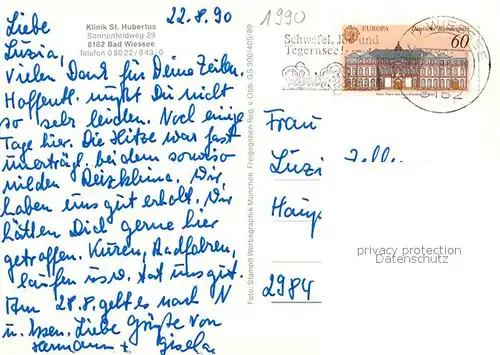 Liebe
Luzia,
Vielen Dank für Deine Zeilen.
Hoffentl. mußt Du nicht
so sehr leiden. Noch einige
Tage hier. Die Hitze war fast
unerträgl. bei dem sowieso
milden Reizklima. Wir
haben uns gut erholt. Wir
hätten Dich gerne hier
getroffen. Kuren, Radfahren,
laufen usw. tat uns gut.
Am 28.8. geht es nach N
u. Essen. Liebe Grüße von
Hermann + Gisela
22.8.90
Klinik St. Hubertus
Sonnenfeldweg 29
8182 Bad Wiessee
Telefon 0 80 22 / 8 43-0
Foto: Stanglt Werbegraphik München. Freigegeben Reg. v. Obb. GS 300/405/89
1990
Schwefel, Jod und
Tegernsee
EUROPA
Deutsche Bundespost
60
WIESSEE
8182
Frau
Luzi
Haup
2984
privacy protection
Datenschutz